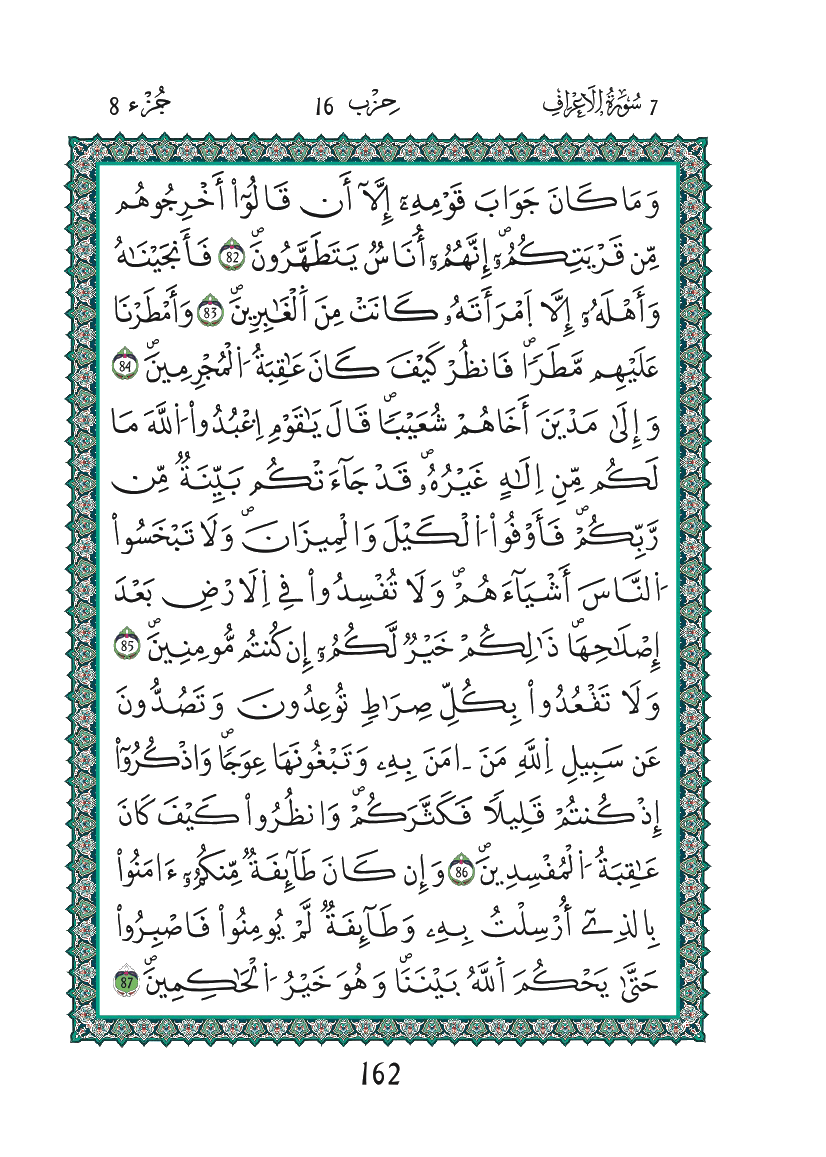 7 سُورَةُ اُلَاعْرَافِ حِزْب 16 جُزْء 8
وَمَا كَانَ جَوَابَ قَوْمِهِۦٓ إِلَّآ أَن قَالُوٓاْ أَخْرِجُوهُم
مِّن قَرْيَتِكُمُۥٓۖ إِنَّهُمُۥٓ أُنَاسٞ يَتَطَهَّرُونَۖ 82 فَأَنجَيْنَٰهُ
وَأَهْلَهُۥٓ إِلَّا اَمْرَأَتَهُۥ كَانَتْ مِنَ اَلْغَٰبِرِينَۖ 83 وَأَمْطَرْنَا
عَلَيْهِم مَّطَراٗۖ فَانظُرْ كَيْفَ كَانَ عَٰقِبَةُ اُلْمُجْرِمِينَۖ 84
وَإِلَىٰ مَدْيَنَ أَخَاهُمْ شُعَيْباٗۖ قَالَ يَٰقَوْمِ اِعْبُدُواْ اُللَّهَ مَا
لَكُم مِّنِ اِلَٰهٍ غَيْرُهُۥۖ قَدْ جَآءَتْكُم بَيِّنَةٞ مِّن
رَّبِّكُمْۖ فَأَوْفُواْ اُلْكَيْلَ وَالْمِيزَانَۖ وَلَا تَبْخَسُواْ
اُلنَّاسَ أَشْيَآءَهُمْۖ وَلَا تُفْسِدُواْ فِے اِلَارْضِ بَعْدَ
إِصْلَٰحِهَاۖ ذَٰلِكُمْ خَيْرٞ لَّكُمُۥٓ إِن كُنتُم مُّومِنِينَۖ 85
وَلَا تَقْعُدُواْ بِكُلِّ صِرَاطٍ تُوعِدُونَ وَتَصُدُّونَ
عَن سَبِيلِ اِللَّهِ مَنَ ـامَنَ بِهِۦ وَتَبْغُونَهَا عِوَجاٗۖ وَاذْكُرُوٓاْ
إِذْ كُنتُمْ قَلِيلاٗ فَكَثَّرَكُمْۖ وَانظُرُواْ كَيْفَ كَانَ
عَٰقِبَةُ اُلْمُفْسِدِينَۖ 86 وَإِن كَانَ طَآئِفَةٞ مِّنكُمُۥٓ ءَامَنُواْ
بِالذِےٓ أُرْسِلْتُ بِهِۦ وَطَآئِفَةٞ لَّمْ يُومِنُواْ فَاصْبِرُواْ
حَتَّىٰ يَحْكُمَ اَللَّهُ بَيْنَنَاۖ وَهُوَ خَيْرُ اُلْحَٰكِمِينَۖ 87
162